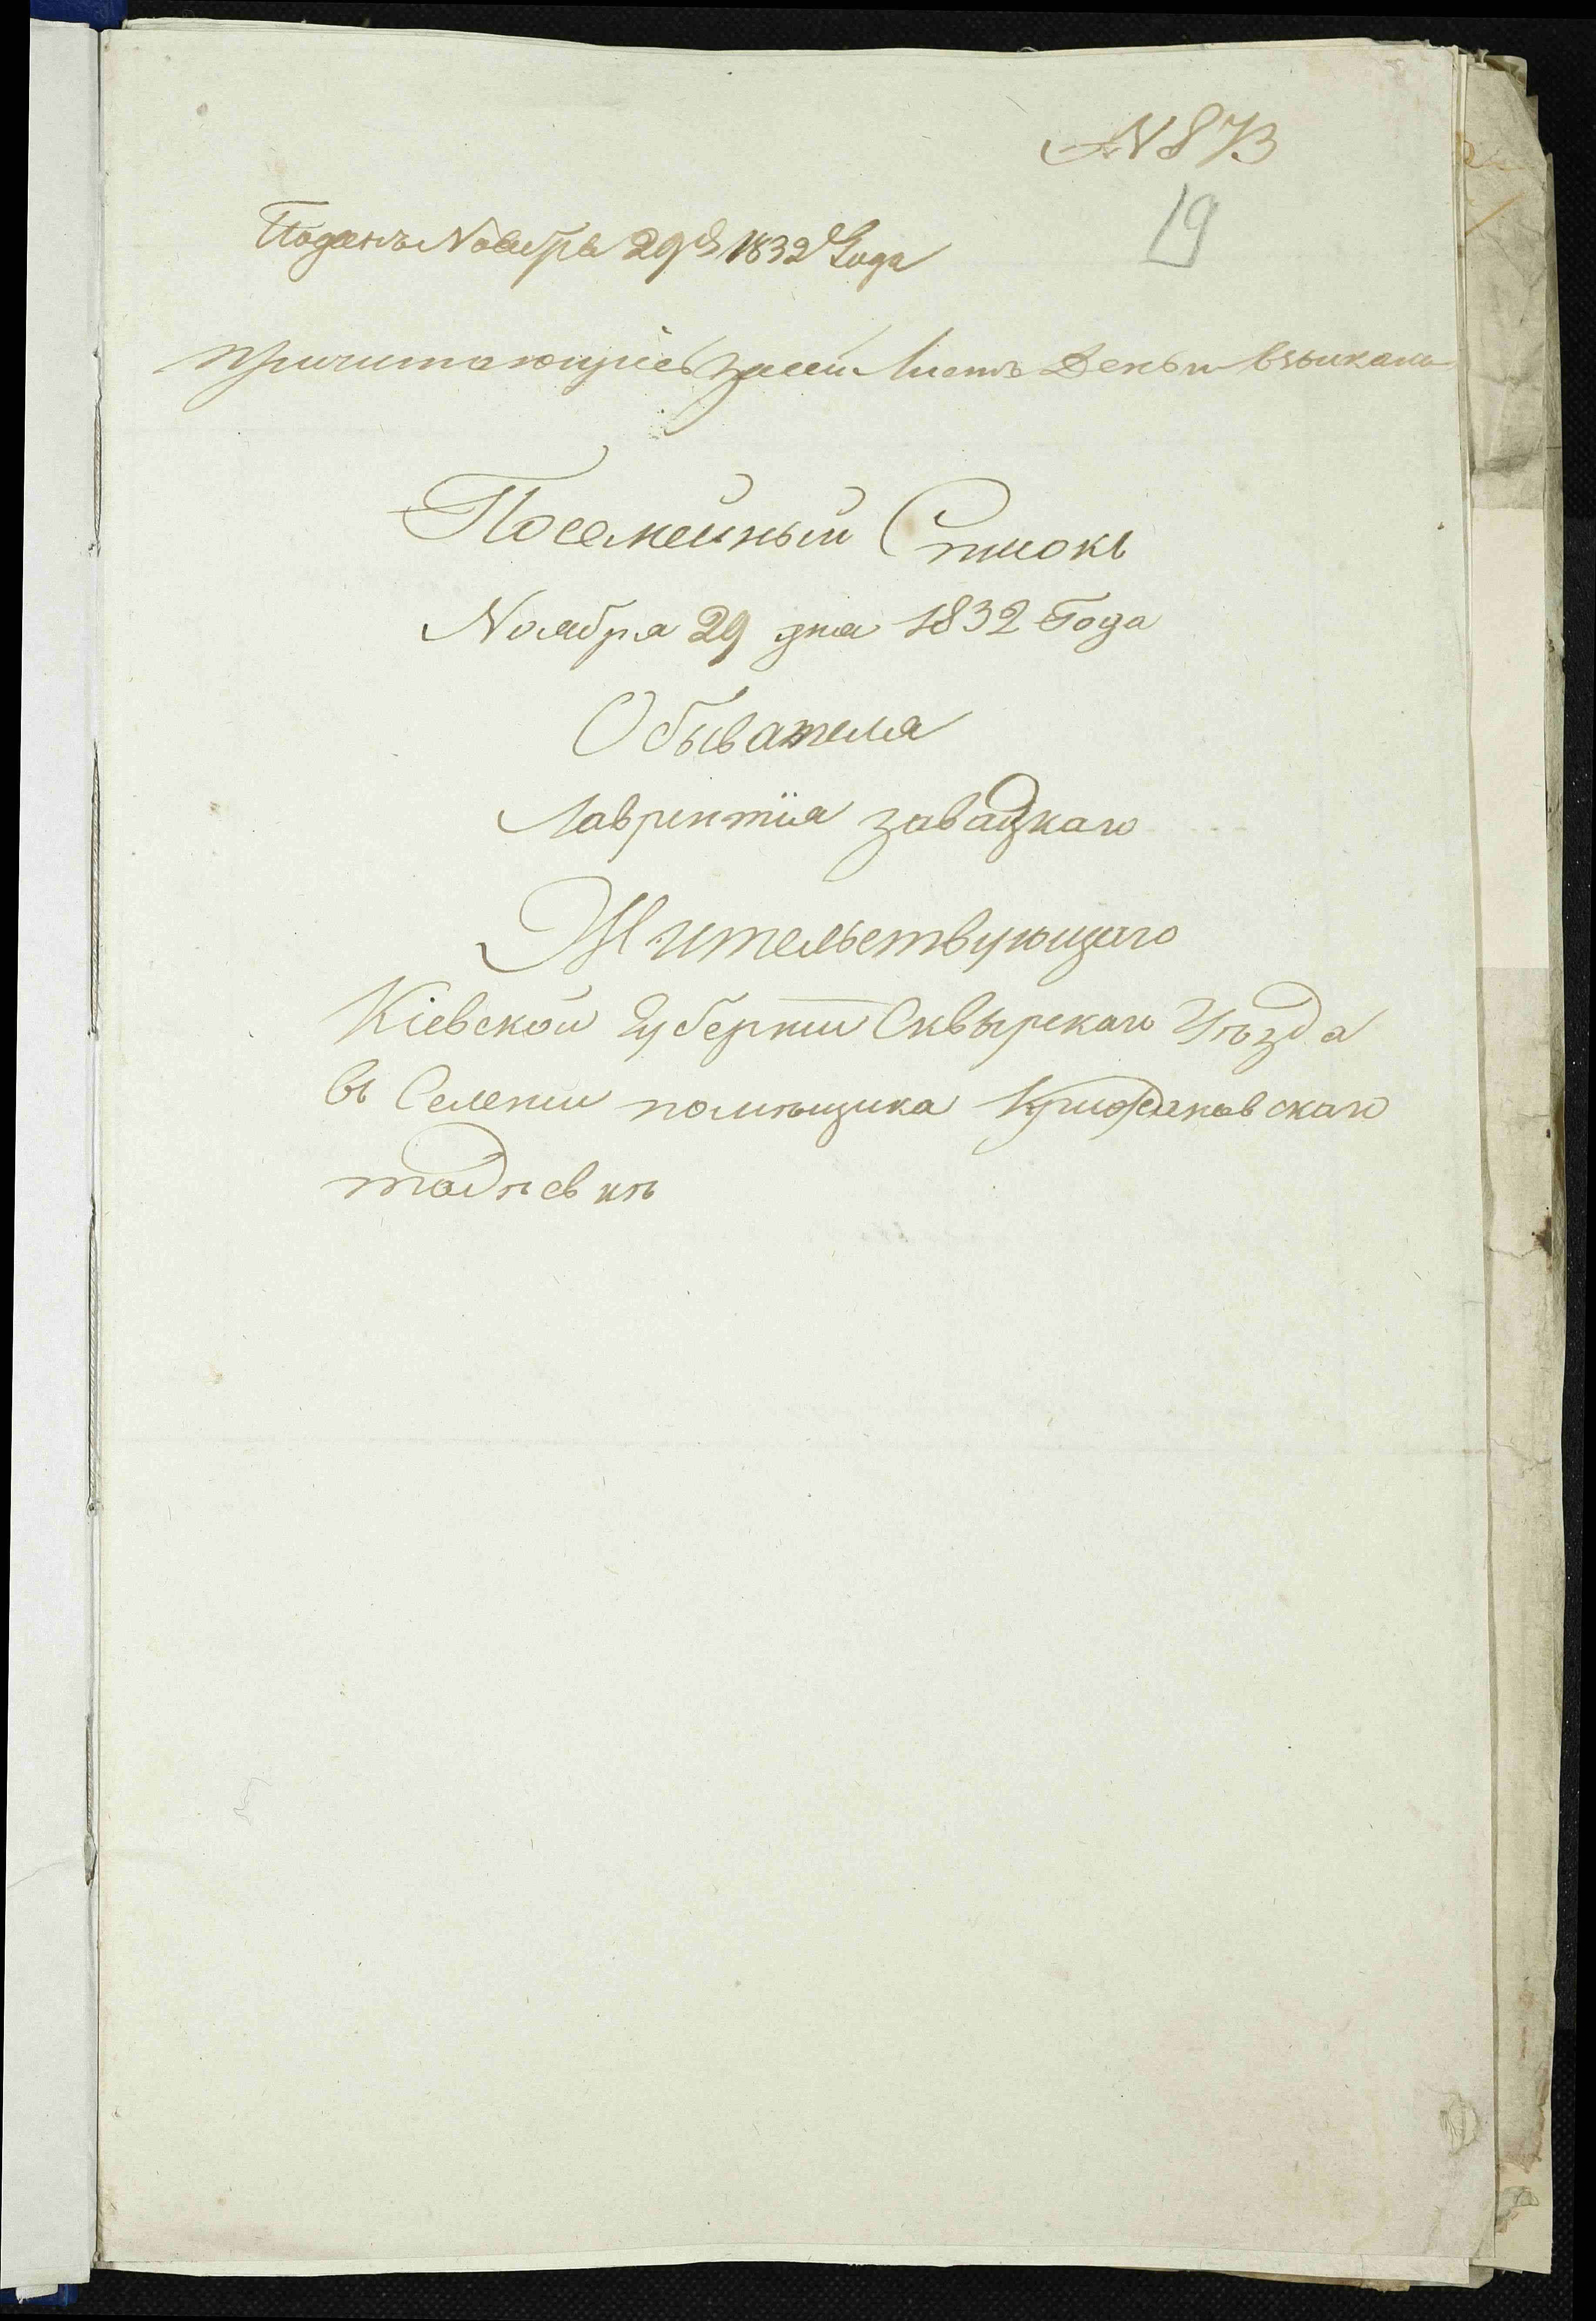 № 873
19
Поданъ Ноября 29 д 1832 Года
причитающіесь за сей Листъ Деньги взыскано
Посемейный Списокъ
Ноября 29 дня 1832 Года
Обывателя
Лаврентія завадзкаго
Жительствующаго
Кіевской Губерніи Сквырскаго Уѣзда
въ Селеніи помѣщика Крижановскаго
тадѣевкѣ